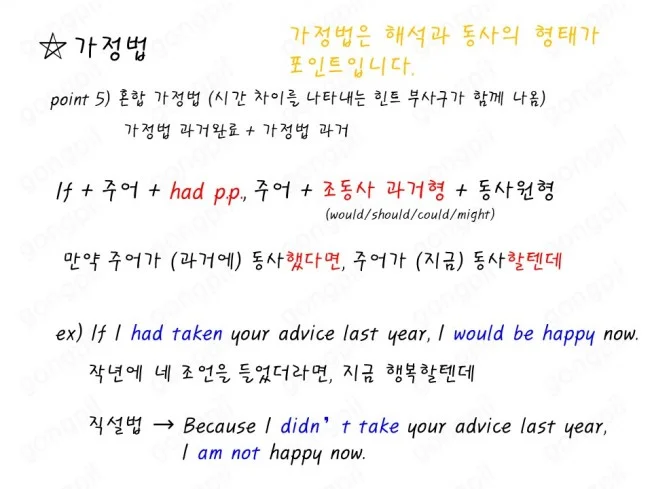 ☆ 가정법
가정법은 해석과 동사의 형태가
포인트입니다.
point 5) 혼합 가정법 (시간 차이를 나타내는 힌트 부사구가 함께 나옴)
가정법 과거완료 + 가정법 과거
If + 주어 + had p.p., 주어 + 조동사 과거형 + 동사원형
(would/should/could/might)
만약 주어가 (과거에) 동사했다면, 주어가 (지금) 동사할텐데
ex) If I had taken your advice last year, I would be happy now.
작년에 네 조언을 들었더라면, 지금 행복할텐데
직설법 → Because I didn't take your advice last year,
I am not happy now.